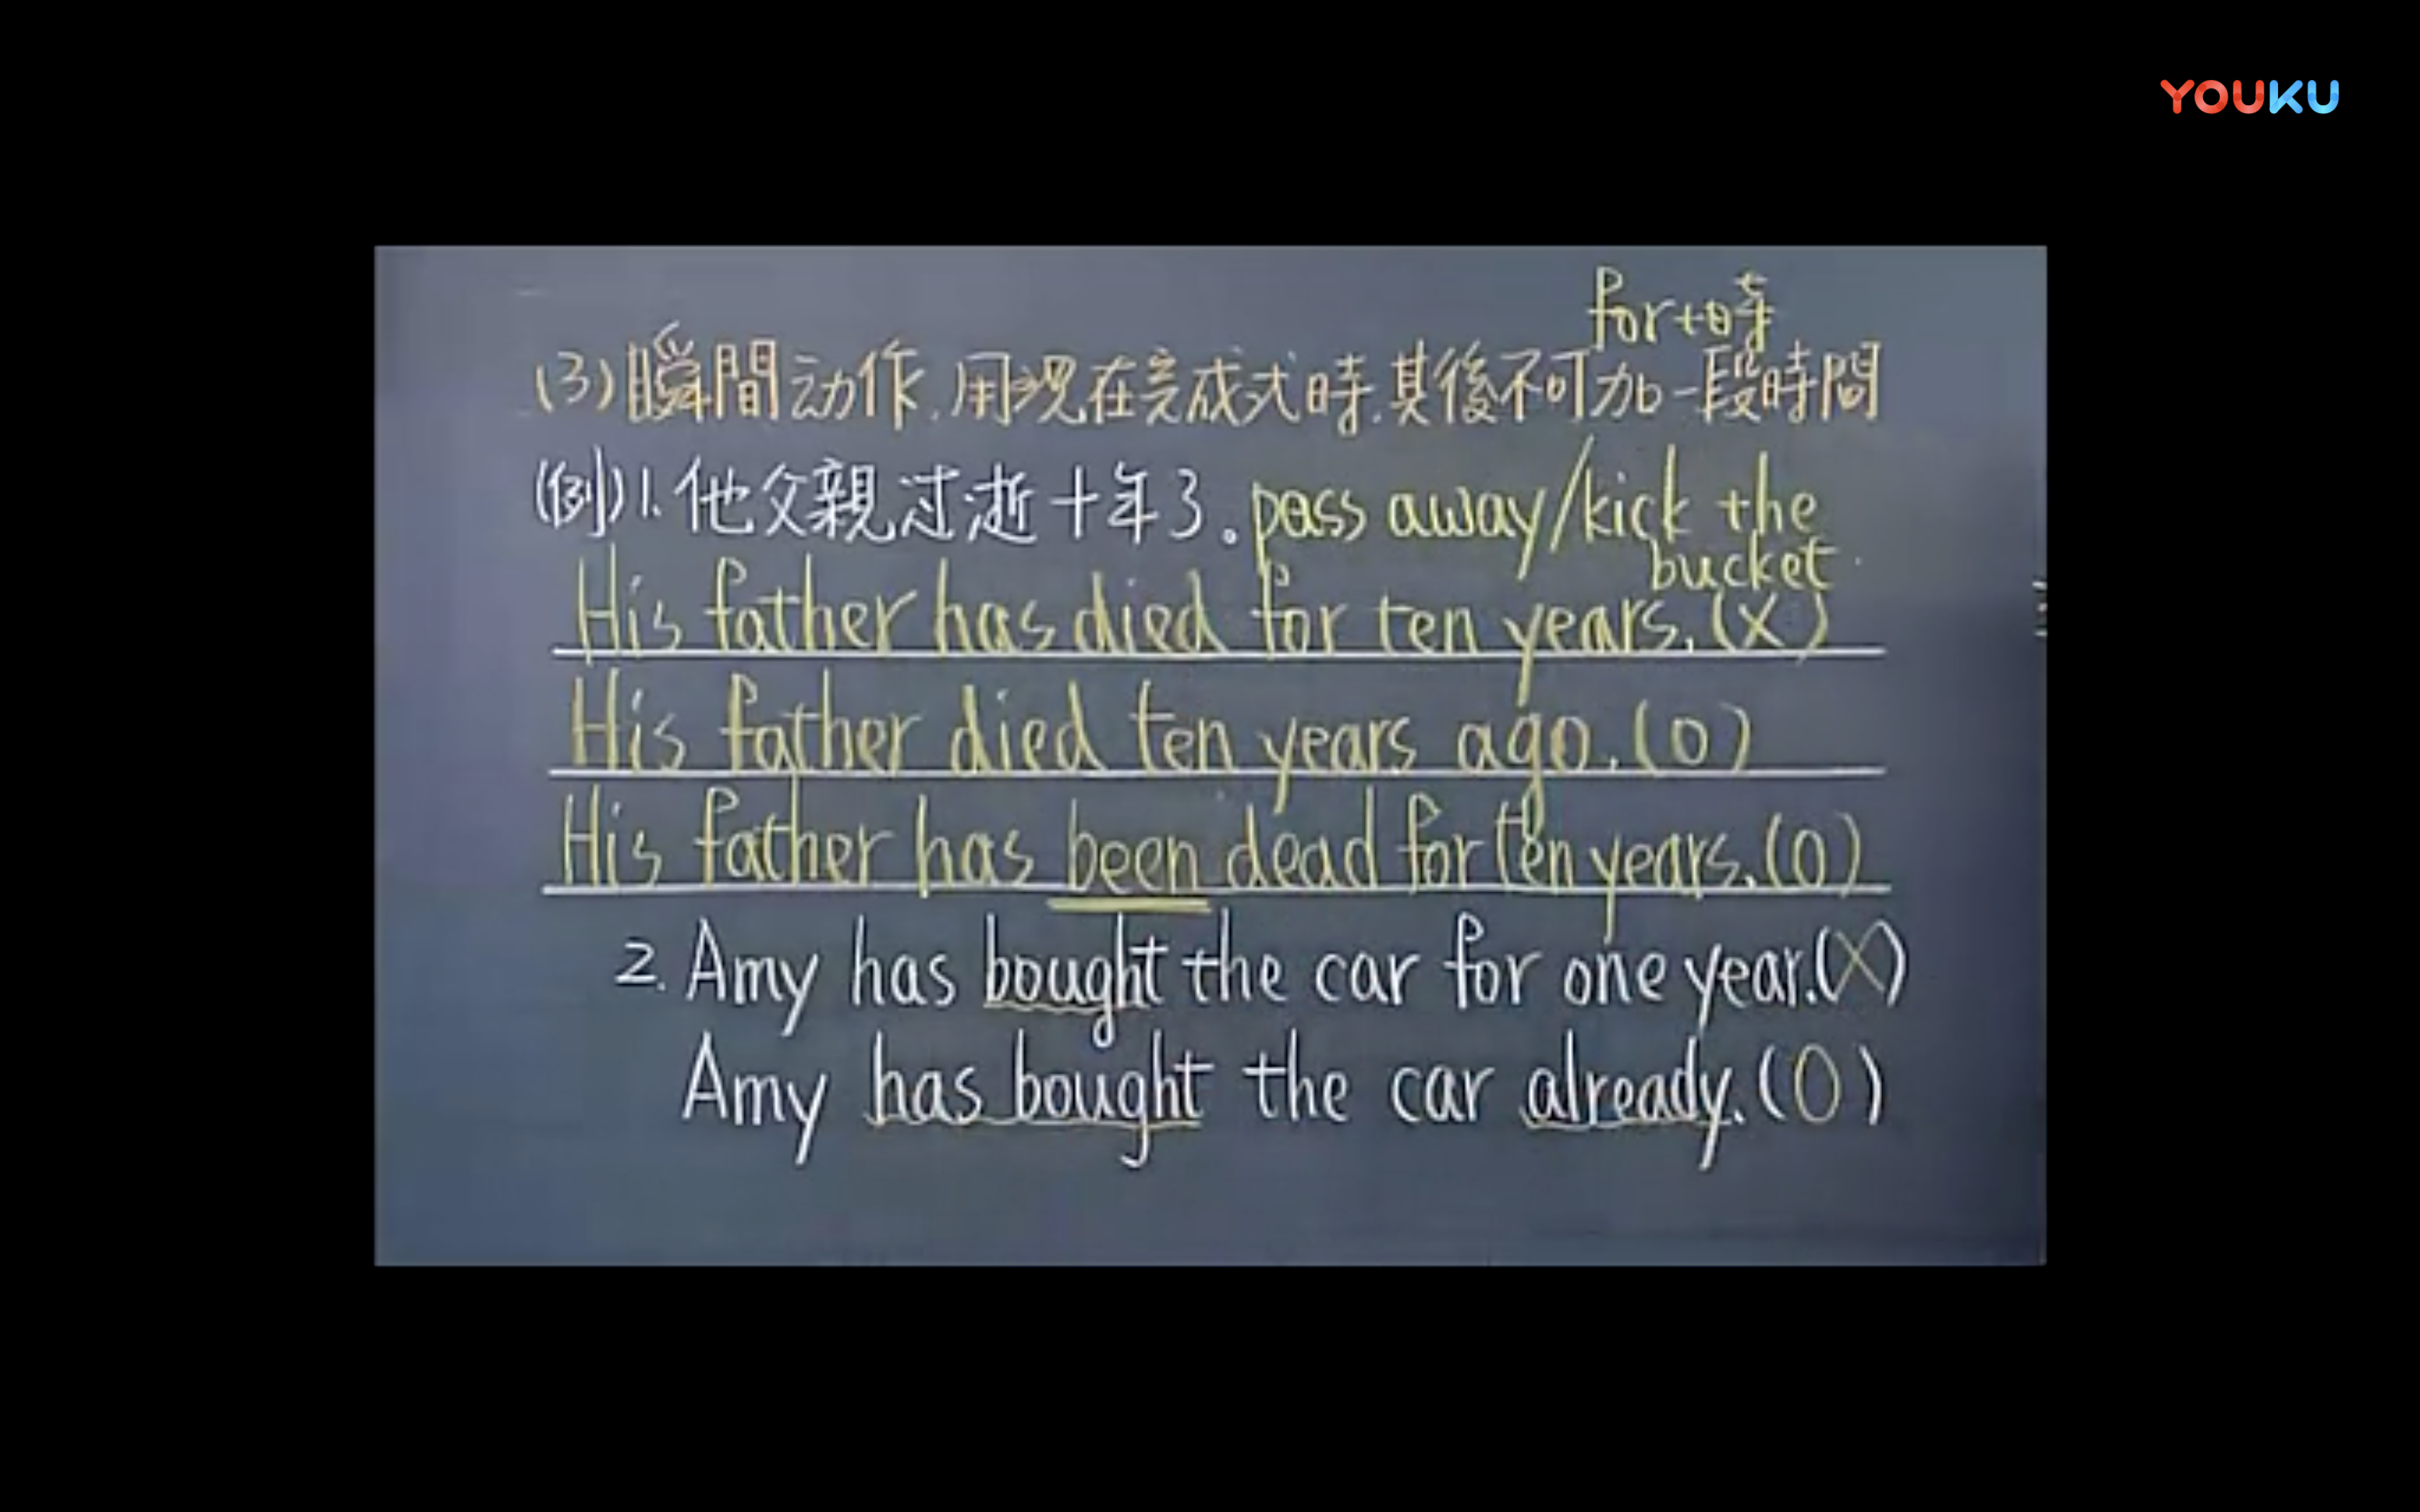 YOUKU
for+時
(3)瞬間动作,用現在完成式時,其後不可加一段時間
(例)1.他父親过逝十年3。pass away/kick the
bucket.
His father has died for ten years.(X)
His father died ten years ago.(O)
His father has been dead for ten years.(O)
2. Amy has bought the car for one year.(X)
Amy has bought the car already.(O)